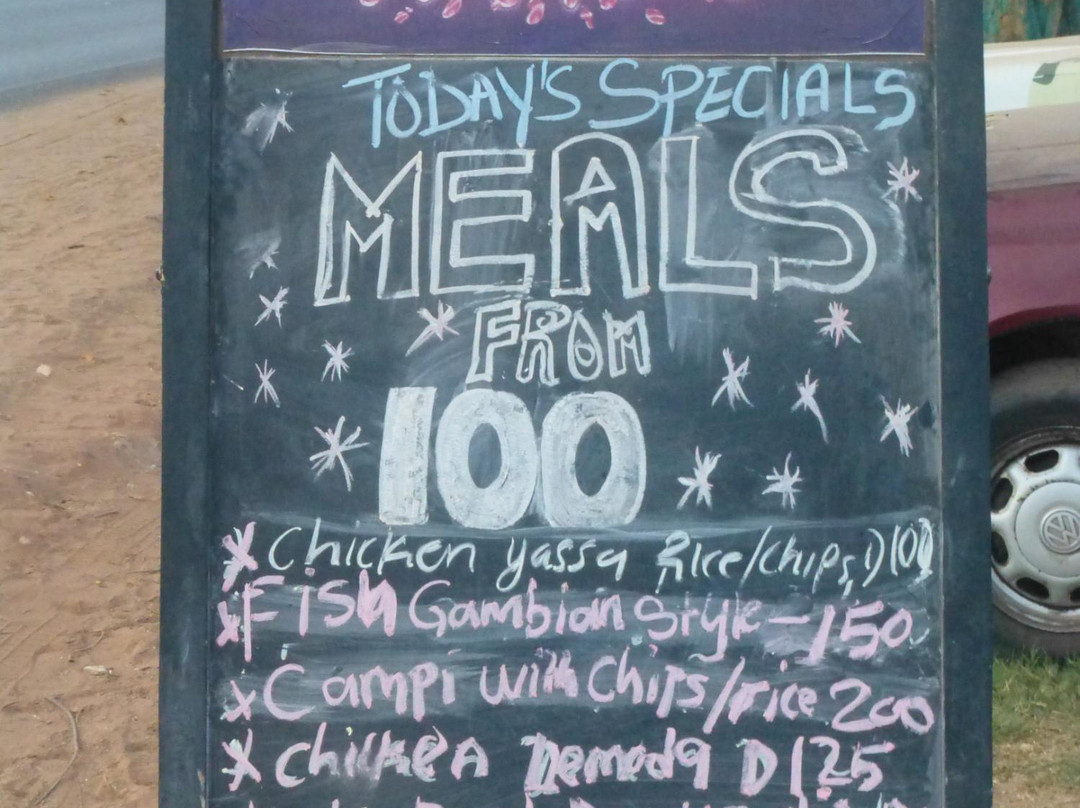 TODAY'S SPECIALS
MEALS
FROM
100
Chicken yassa Rice/chips, D100
FISH Gambian Style - 150
Campi with Chips/rice 200
Chicken Demoda D125